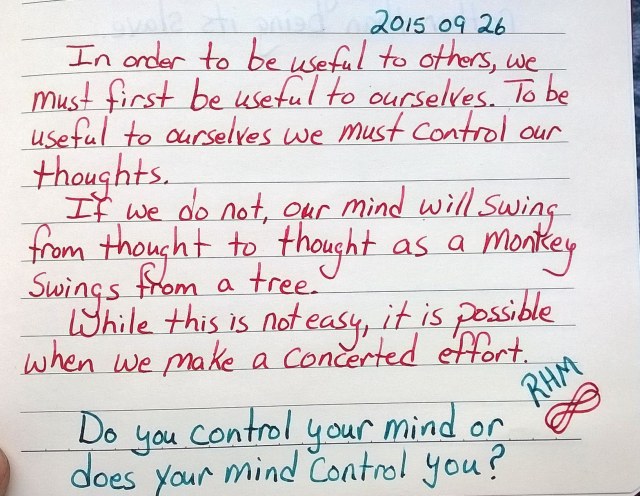 2015 09 26
In order to be useful to others, we
must first be useful to ourselves. To be
useful to ourselves we must control our
thoughts.
If we do not, our mind will swing
from thought to thought as a monkey
swings from a tree.
While this is not easy, it is possible
when we make a concerted effort.
RHM
Do you control your mind or
does your mind control you?